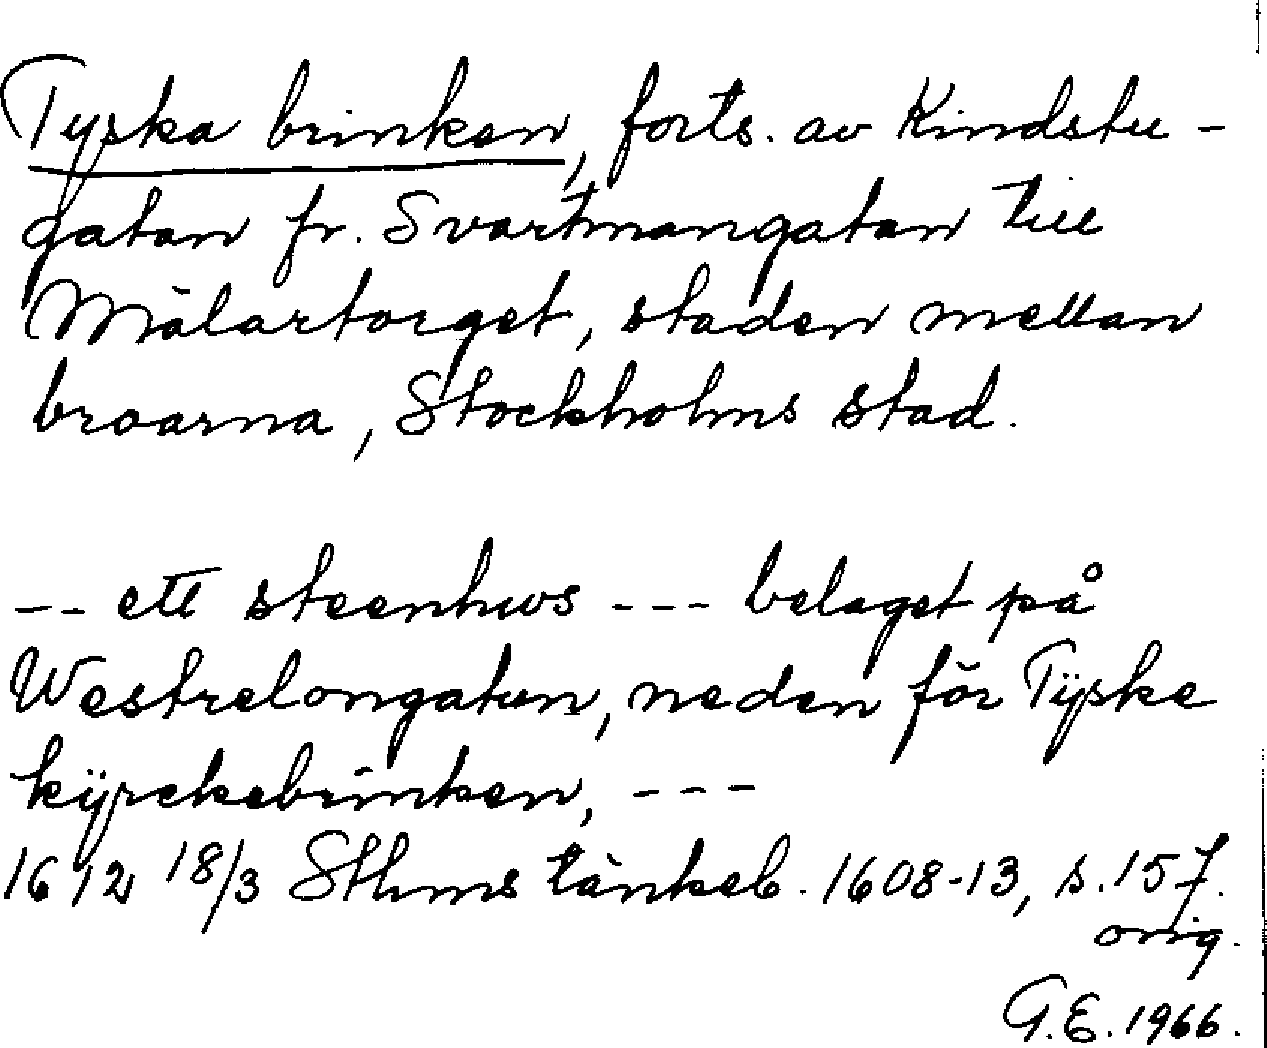 Tyska brinken, forts. av Kindstu-
gatan fr. Svartmangatan till
Mälartorget, staden mellan
broarna, Stockholms stad.
-- ett steenhws --- belaget på
Westrelongatun, neden för Tÿske
kÿrckebrinken, ---
1612 18/3 Sthms tänkeb. 1608-13, s. 157.
orig.
G.E. 1966.